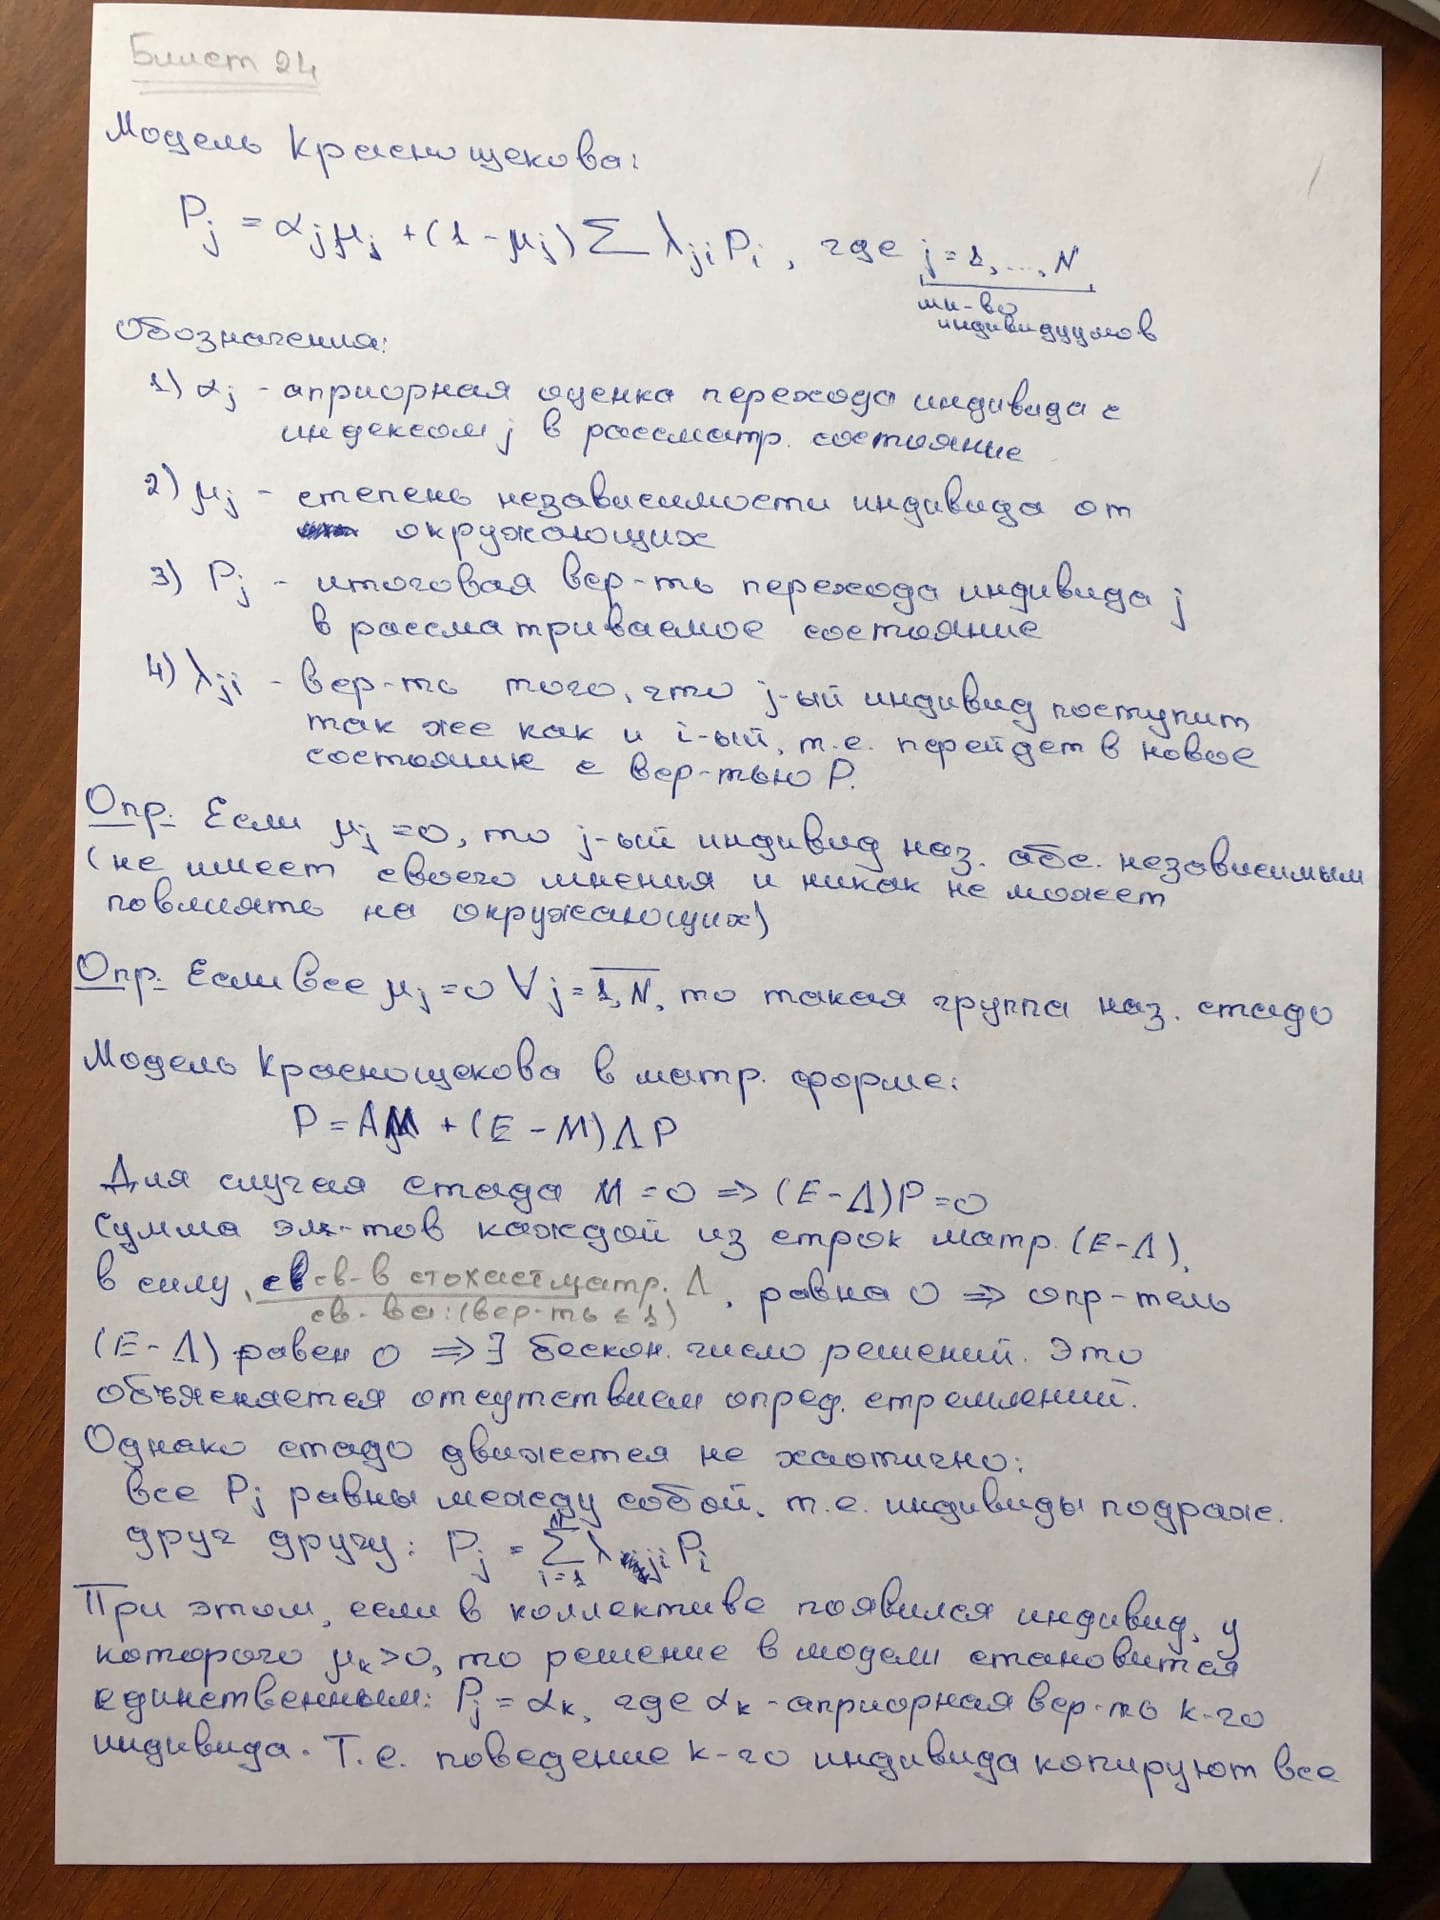 Билет 24
Модель Краснощекова:
P_j = α_j μ_j + (1 - μ_j) Σ λ_ji P_i, где j = 1, ..., N,
мн-во
индивидуумов
Обозначения:
1) α_j - априорная оценка перехода индивида с
индексом j в рассматр. состояние
2) μ_j - степень независимости индивида от
окружающих
3) P_j - итоговая вер-ть перехода индивида j
в рассматриваемое состояние
4) λ_ji - вер-ть того, что j-ый индивид поступит
так же как и i-ый, т.е. перейдет в новое
состояние с вер-тью P.
Опр. Если μ_j = 0, то j-ый индивид наз. абс. независимым
(не имеет своего мнения и никак не может
повлиять на окружающих)
Опр. Если все μ_j = 0 ∀ j = 1, N, то такая группа наз. стадо
Модель Краснощекова в матр. форме:
P = AM + (E - M) Λ P
Для случая стада M = 0 ⇒ (E - Λ)P = 0
Сумма эл-тов каждой из строк матр. (E - Λ),
в силу св-в стохаст матр. Λ, равна 0 ⇒ опр-тель
св-ва: (вер-ть ≤ 1)
(E - Λ) равен 0 ⇒ ∃ бескон. число решений. Это
объясняется отсутствием опред. стремлений.
Однако стадо движется не хаотично:
все P_j равны между собой, т.е. индивиды подраж.
друг другу: P_j = Σ_{i=1}^{N} λ_ji P_i
При этом, если в коллективе появился индивид, у
которого μ_k > 0, то решение в модели становится
единственным: P_j = α_k, где α_k - априорная вер-ть k-го
индивида. Т.е. поведение k-го индивида копируют все